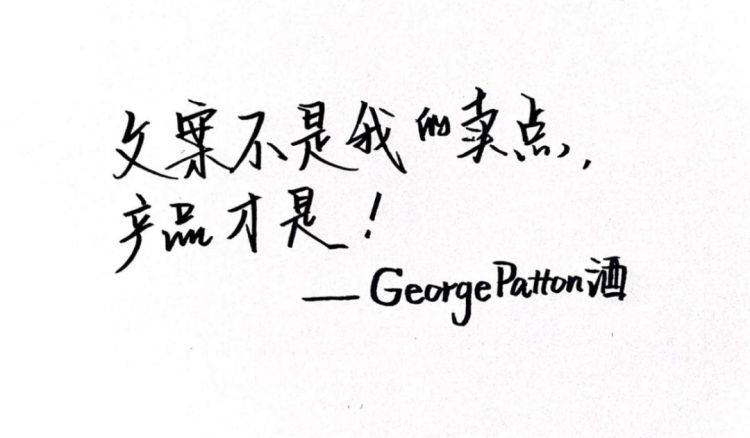 文案不是我的卖点，
产品才是！
—GeorgePatton酒